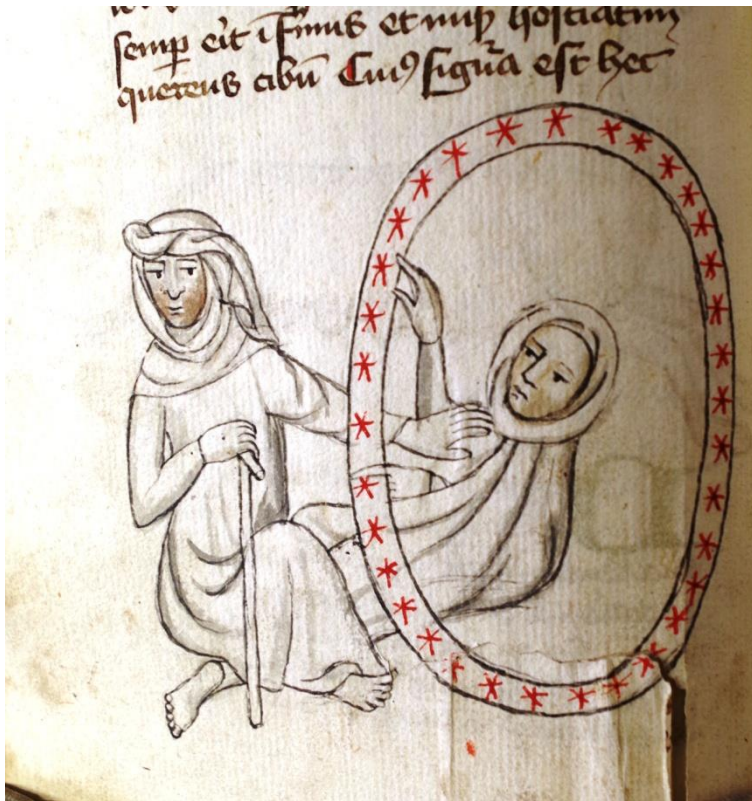 semp̱ eit ĩfirmus et nuqꝫ hostiatim
querens cibū Cuiꝰ figura est hec